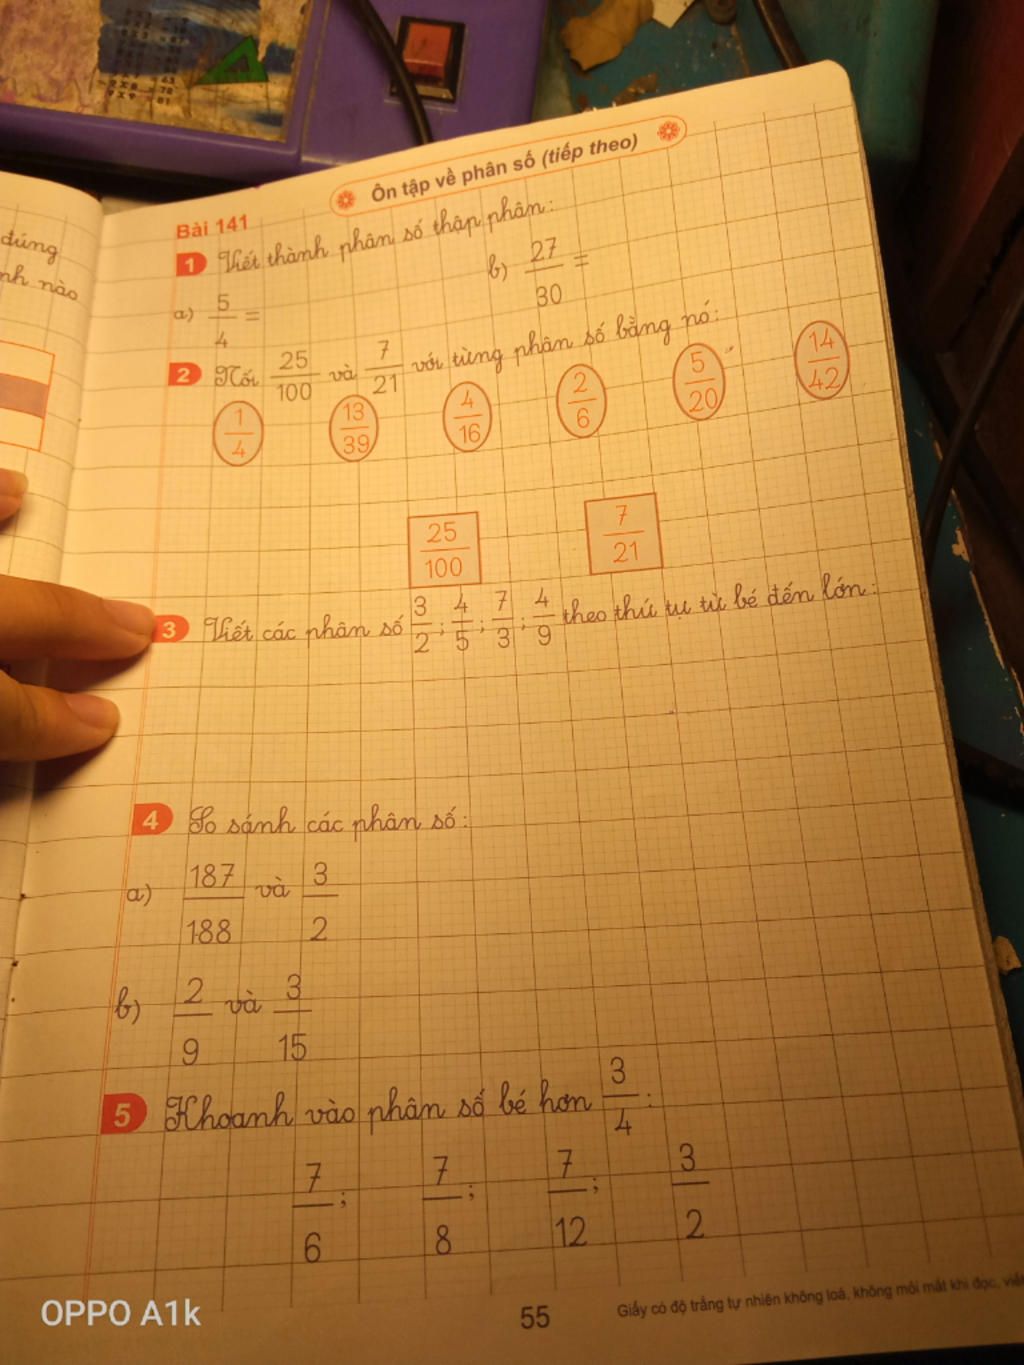 Ôn tập về phân số (tiếp theo)
đúng
nh nào
Bài 141
1 Viết thành phân số thập phân:
a) 5/4 =
b) 27/30 =
2 Nối 25/100 và 7/21 với từng phân số bằng nó:
1/4 13/39 4/16 2/6 5/20 14/42
25/100 7/21
3 Viết các phân số 3/2; 4/5; 7/3; 4/9 theo thứ tự từ bé đến lớn:
4 So sánh các phân số:
a) 187/188 và 3/2
b) 2/9 và 3/15
5 Khoanh vào phân số bé hơn 3/4:
7/6; 7/8; 7/12; 3/2
55
Giấy có độ trắng tự nhiên không loá, không mỏi mắt khi đọc, viế
OPPO A1k